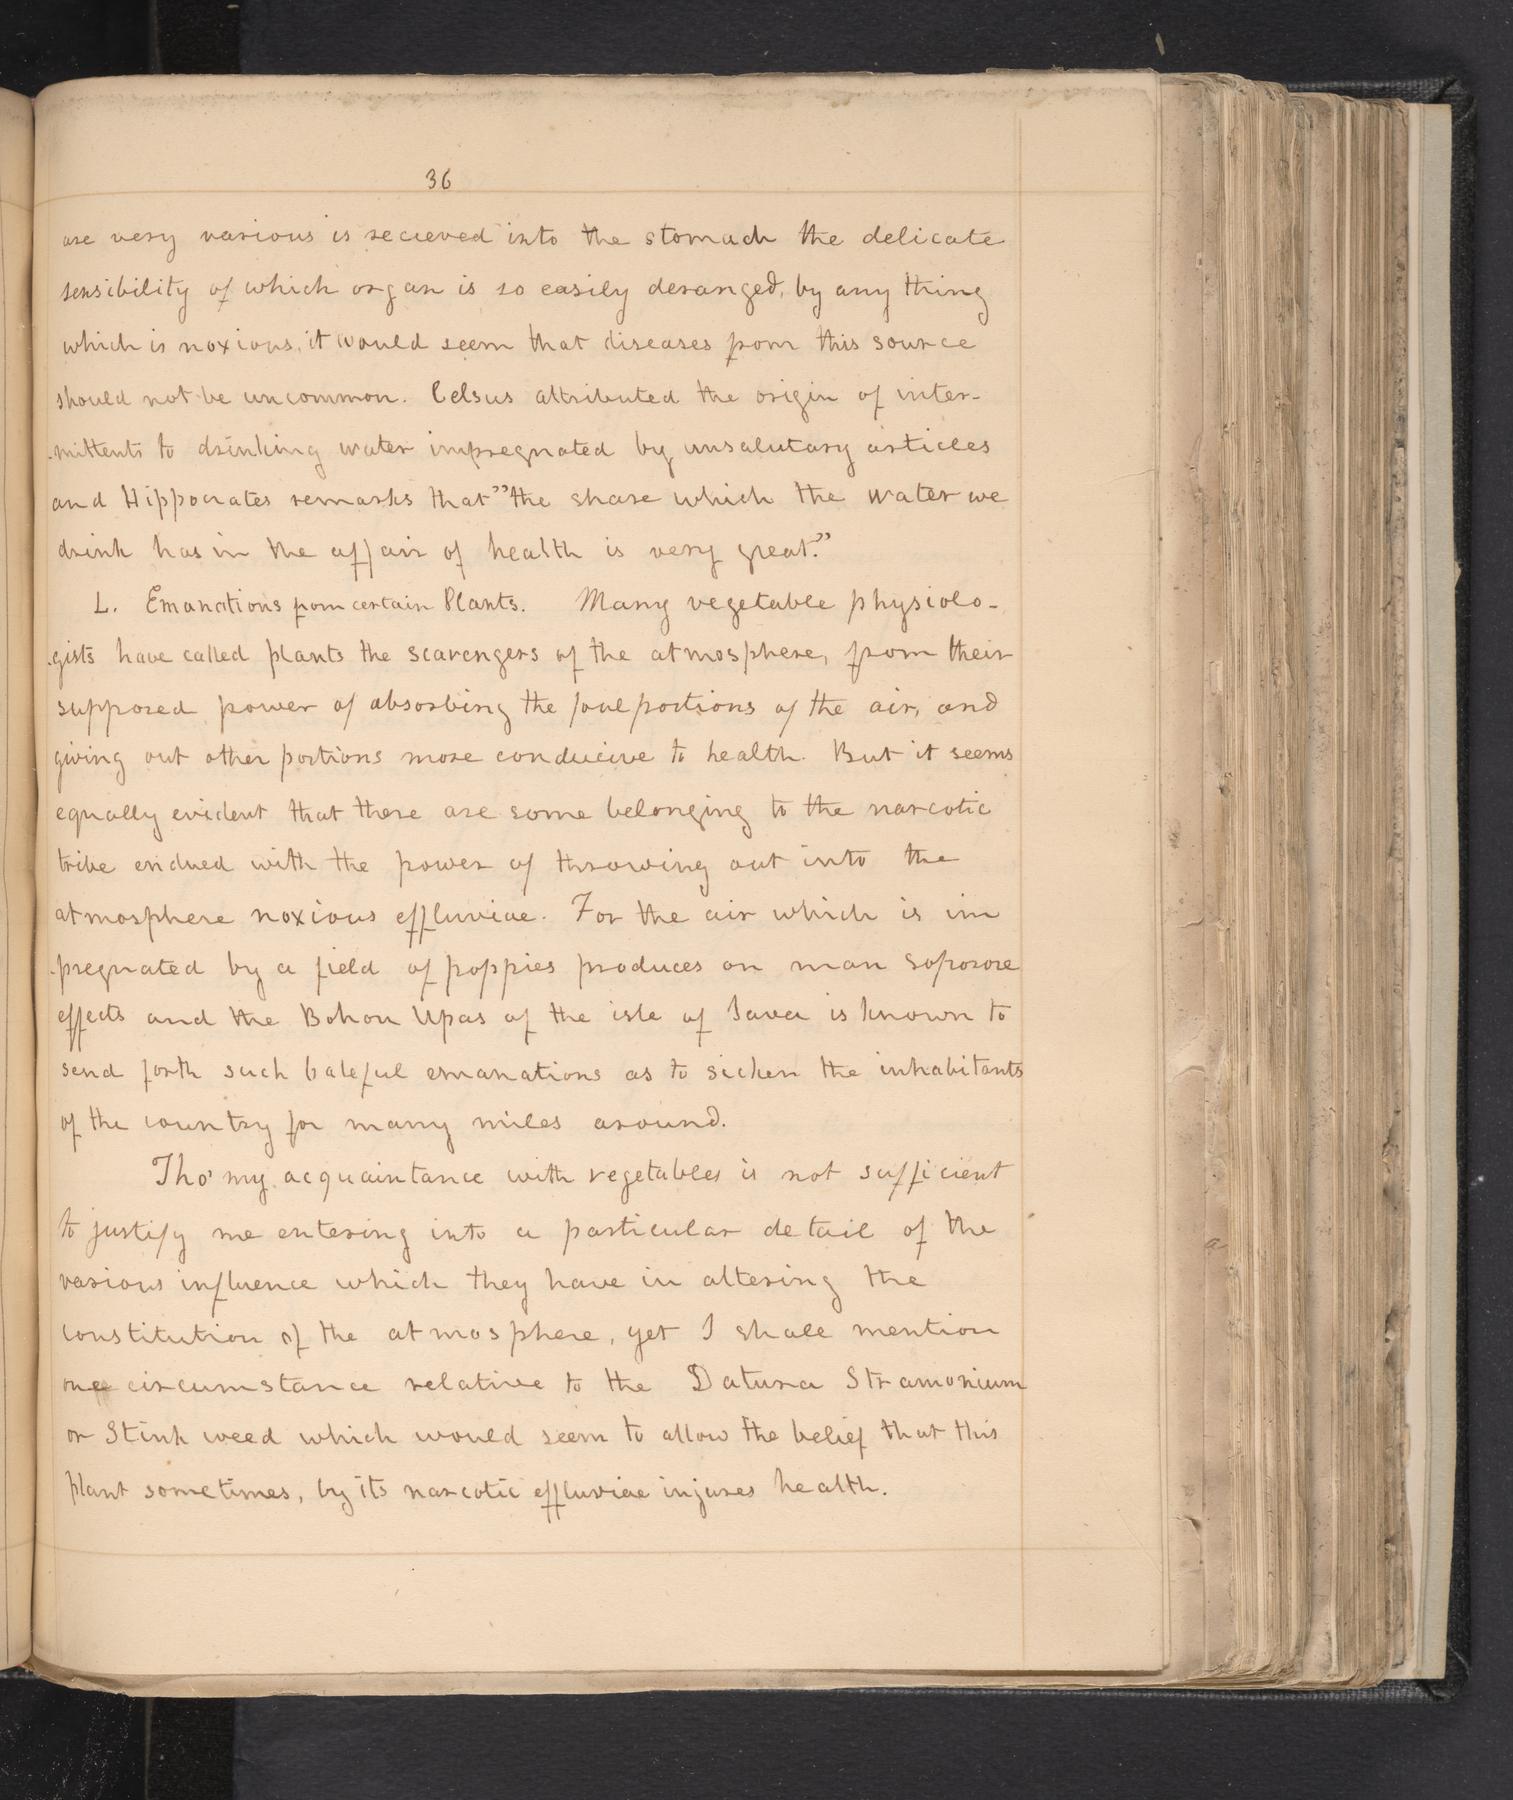 36
are very various is recieved into the stomach the delicate
sensibility of which organ is so easily deranged, by any thing
which is noxious, it would seem that diseases from this source
should not be uncommon. Celsus attributed the origin of inter-
-mittents to drinking water impregnated by unsalutary articles
and Hippocrates remarks that "the share which the water we
drink has in the affair of health is very great."
L. Emanations from certain Plants. Many vegetable physiolo-
-gists have called plants the scavengers of the atmosphere, from their
supposed power of absorbing the foul portions of the air, and
giving out other portions more conducive to health. But it seems
equally evident that there are some belonging to the narcotic
tribe endued with the power of throwing out into the
atmosphere noxious effluviae. For the air which is im
-pregnated by a field of poppies produces on man soporore
effects and the Bohon Upas of the isle of Java is known to
send forth such baleful emanations as to sicken the inhabitants
of the country for many miles around.
Tho' my acquaintance with vegetables is not sufficient
to justify me entering into a particular detail of the
various influence which they have in altering the
constitution of the atmosphere, yet I shall mention
one circumstance relative to the Datura Stramonium
or Stink weed which would seem to allow the belief that this
plant sometimes, by its narcotic effluviae injures health.